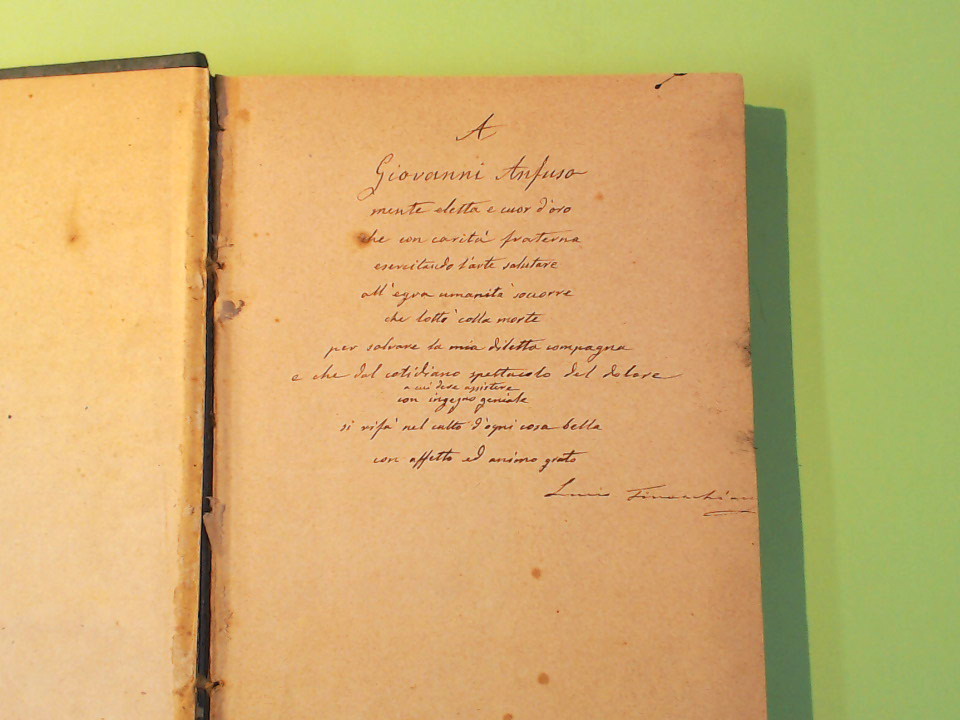 A
Giovanni Anfuso
mente eletta e cuor d'oro
che con carità fraterna
esercitando l'arte salutare
all'egra umanità soccorre
che lottò colla morte
per salvare la mia diletta compagna
e che dal cotidiano spettacolo del dolore
a cui deve assistere
con ingegno geniale
si rifà nel culto d'ogni cosa bella
con affetto ed animo grato